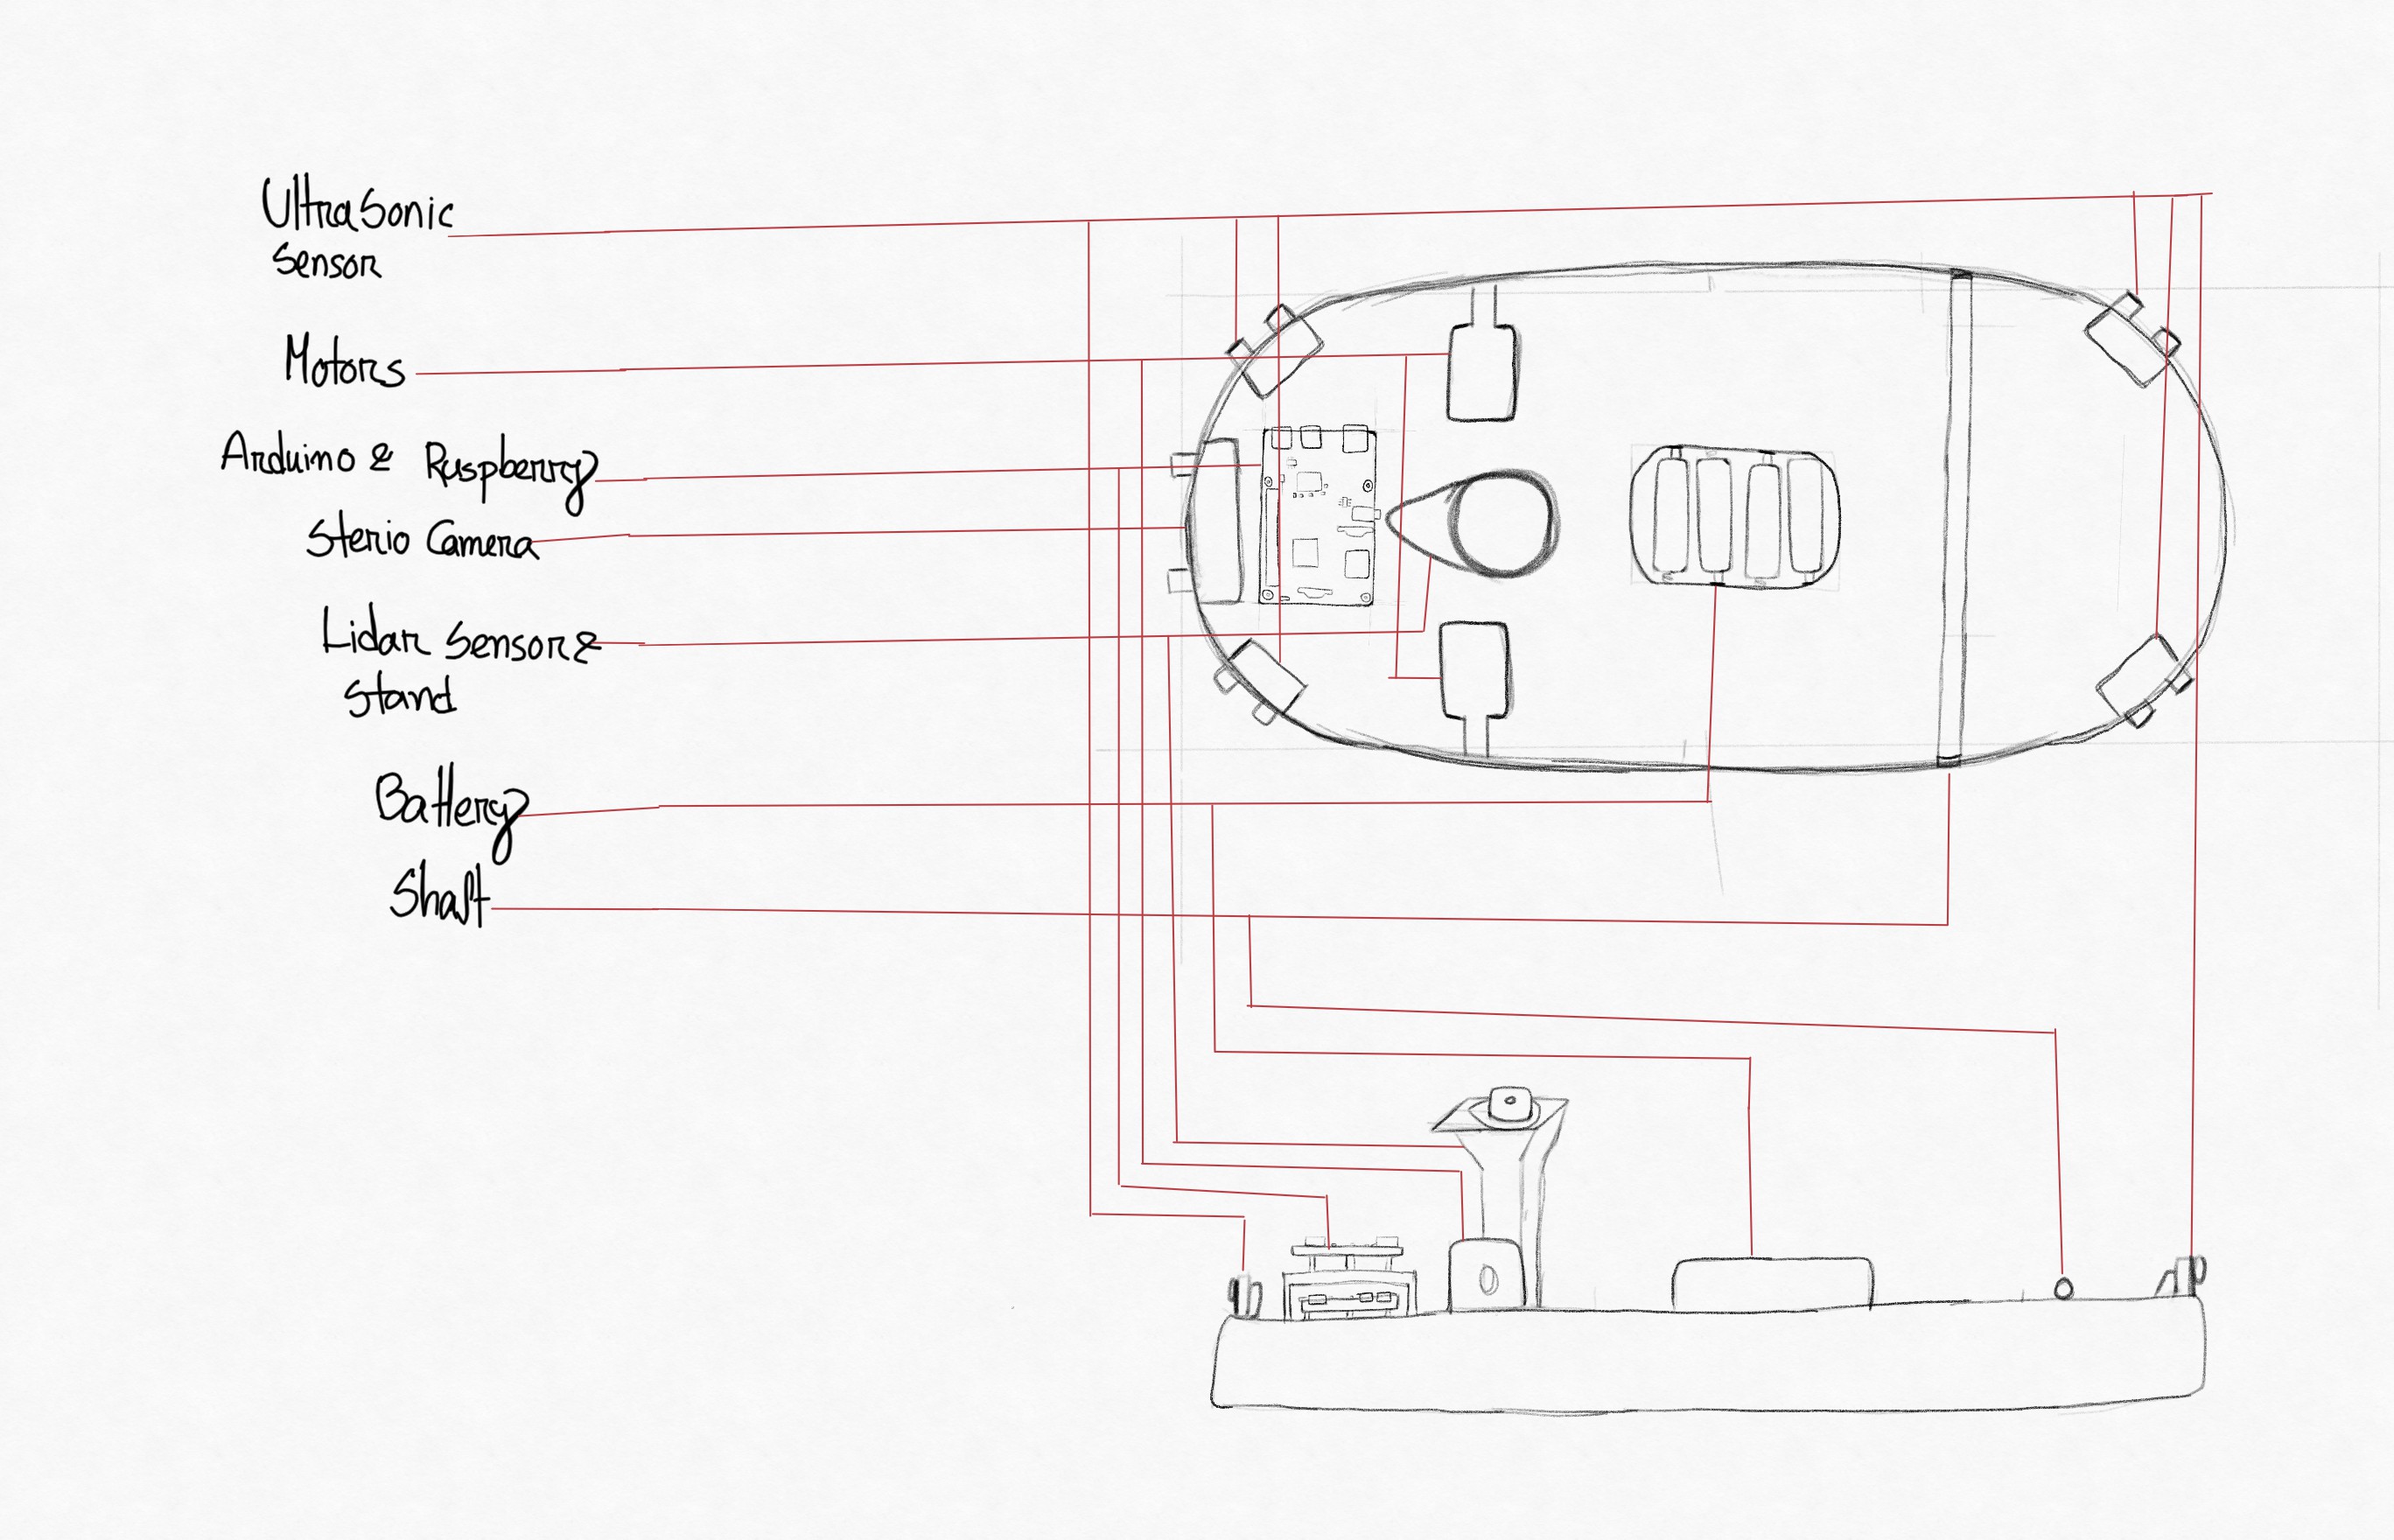 UltraSonic
Sensor
Motors
Arduino & Ruspberry
Sterio Camera
Lidar Sensor &
Stand
Battery
Shaft